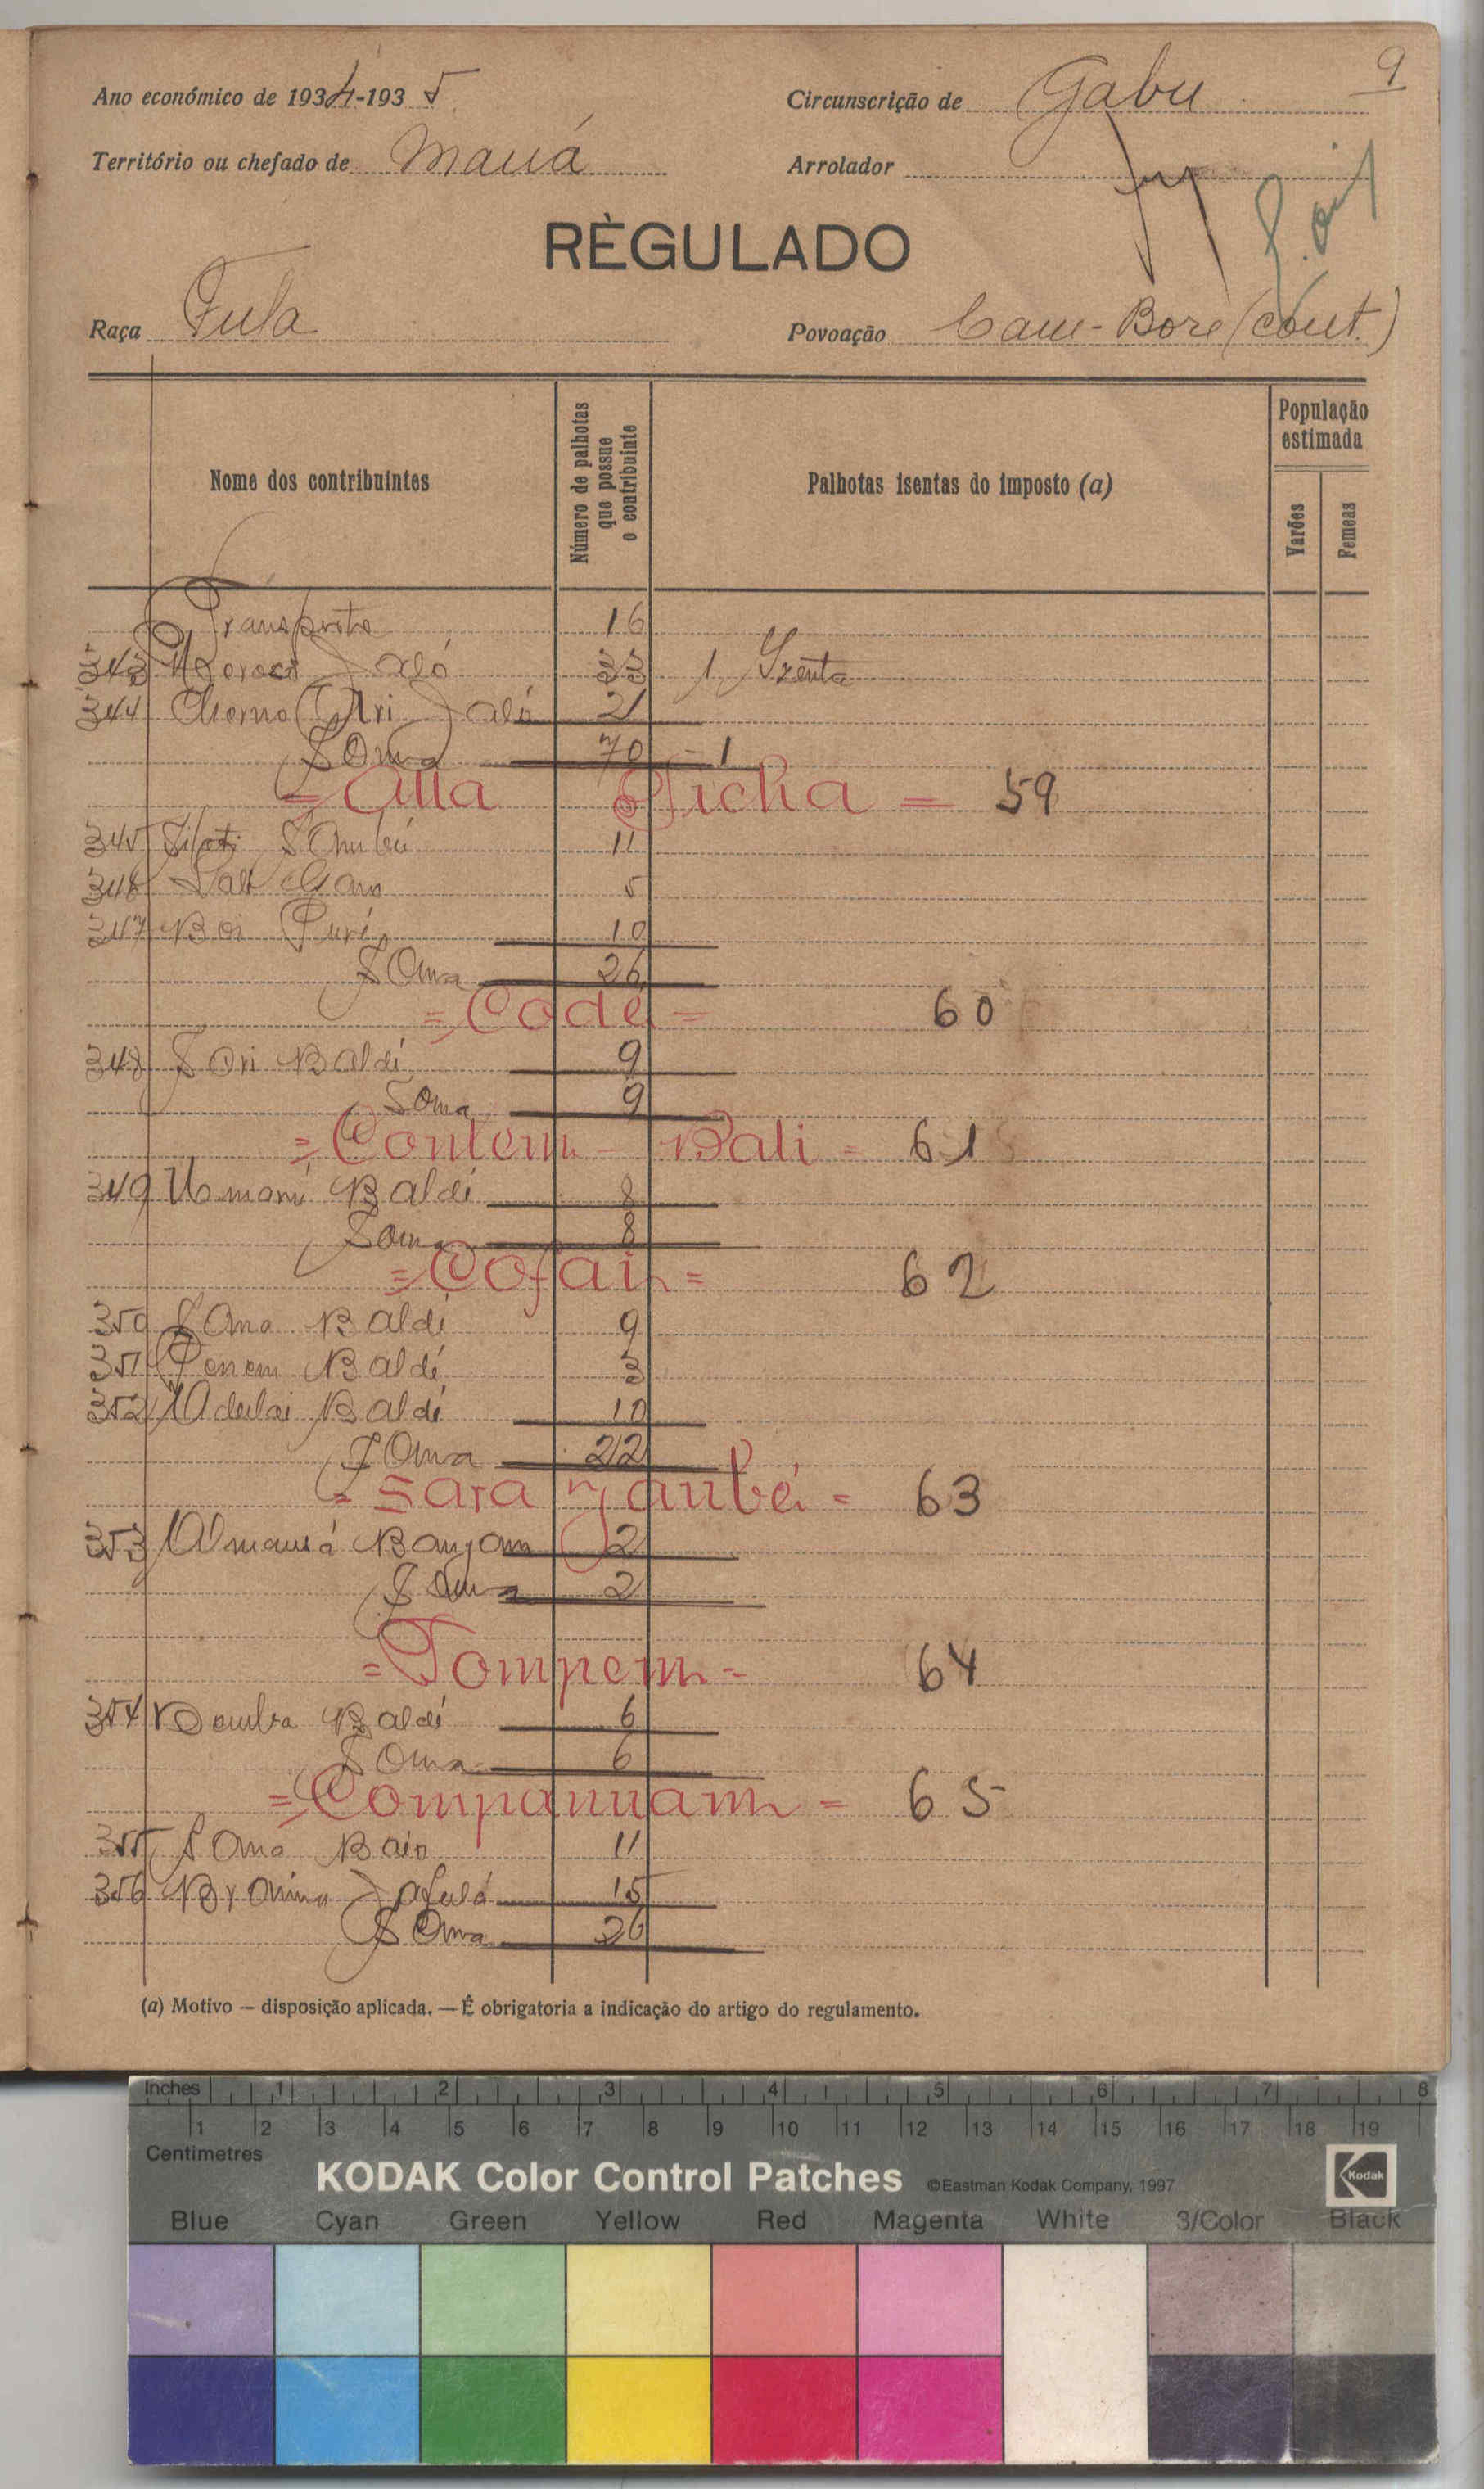 9
Ano económico de 1934-1935
Circunscrição de Gabu
Território ou chefado de Mauá
Arrolador
RÈGULADO
Raça Fula
Povoação Cam-Boré (cont.)
Nome dos contribuintes
Número de palhotas que possue o contribuinte
Palhotas isentas do imposto (a)
População estimada
Varões
Femeas
Transporte 16
343 Jaló 33 1 Izenta
344 Cherno Jaló 21
Soma 70 - 1
= Alla Ficha = 59
345 11
346 5
347 10
Soma 26
= Codé = 60
348 Sori Baldé 9
Soma 9
= Contem - Bali = 61
349 Umarú Baldé 8
Soma 8
= Cofain = 62
350 Samo Baldé 9
351 Penem Baldé 3
352 Adulai Baldé 10
Soma 22
= Sara Jaubé = 63
353 Banjam 2
Soma 2
= Tompem = 64
354 Demba Baldé 6
Soma 6
= Companuam = 65
355 Samo Baio 11
356 Braima 15
Soma 26
(a) Motivo — disposição aplicada. — Ê obrigatoria a indicação do artigo do regulamento.
Inches 1 2 3 4 5 6 7 8
1 2 3 4 5 6 7 8 9 10 11 12 13 14 15 16 17 18 19
Centimetres
KODAK Color Control Patches ©Eastman Kodak Company, 1997 Kodak
Blue Cyan Green Yellow Red Magenta White 3/Color Black